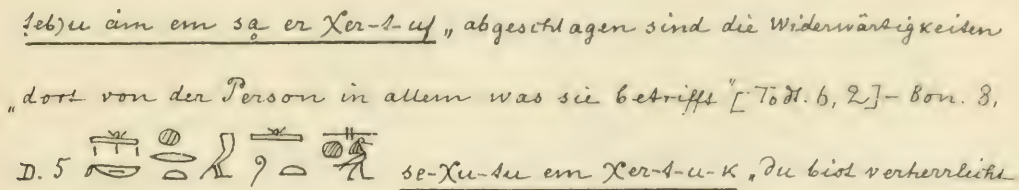 seb)u àm em sa er χer-t-uf „abgeschlagen sind die Widerwärtigkeiten
„dort von der Person in allem was sie betrifft" [Todt. 6, 2] – Bon. 3,
D. 5 se-χu-tu em χer-t-u-k „du bist verherrlicht